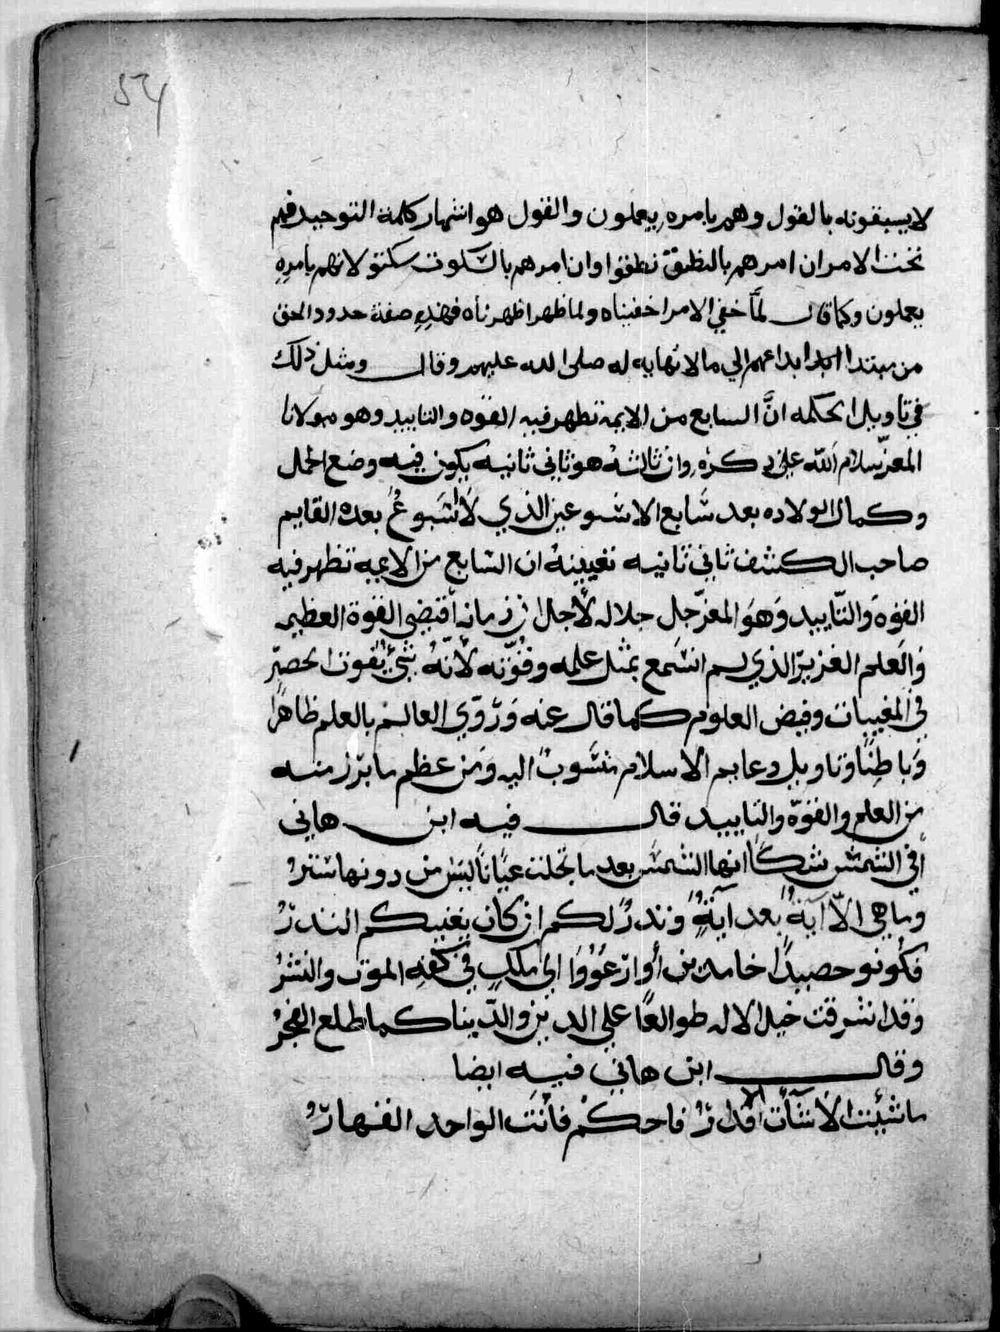 لا يسبقونه بالقول وهم بامره يعملون والقول هو اشهار كلمة التوحيد فهم
تحت الامر ان امرهم بالنطق نطقوا وان امرهم بالسكوت سكتو لانهم بامره
يعملون وكما قال لمّا خفي الامر اخفيناه ولما ظهر اظهرناه فهذه صفة حدود الحق
من مبتدا ابداعهم الي ما لا نهايه له صلى الله عليهم وقال ومثل ذلك
في تاويل الحكمه انّ السابع من الايمة تظهر فيه القوه والتاييد وهو مولانا
المعز سلام الله علي ذكره وان ثالثه هو ثاني ثانيه يكون فيه وضع الحمل
وكمال الولاده بعد سابع الاسبوعين الذي لا اسبوع بعده القايم
صاحب الكشف ثاني ثانيه تعيينه ان السابع من الايمه تظهر فيه
القوه والتّاييد وهو المعز جل جلاله لاجل ان زمانه اقتضى القوة العظيمه
والعلم الغزير الذي لم اسمع بمثل علمه وقوّته لانه شي يفوت الحصر
في المغيبات وفيض العلوم كما قال عنه وروي العالم بالعلم ظاهرا
وباطنا وتاويل دعايم الاسلام منسوب اليه ومن عظم ما برز منه
من العلم والقوّة والتاييد قال فيه ابن هاني
افي الشمس شكا انها الشمس بعد ما تجلت عيانا ليس من دونها ستر
وما هي الّا آية بعد اية ونذر لكم ان كان يغنيكم النذر
فكونو حصيدا خامدين أو ارعووا الي ملك في كفه الموت والنشر
وقد اشرقت خيل الاله طوالعا علي الدين والدّينا كما طلع الفجر
وقال ابن هاني فيه ايضا
ما شئت لا ما شأت الاقدار فاحكم فانت الواحد القهار